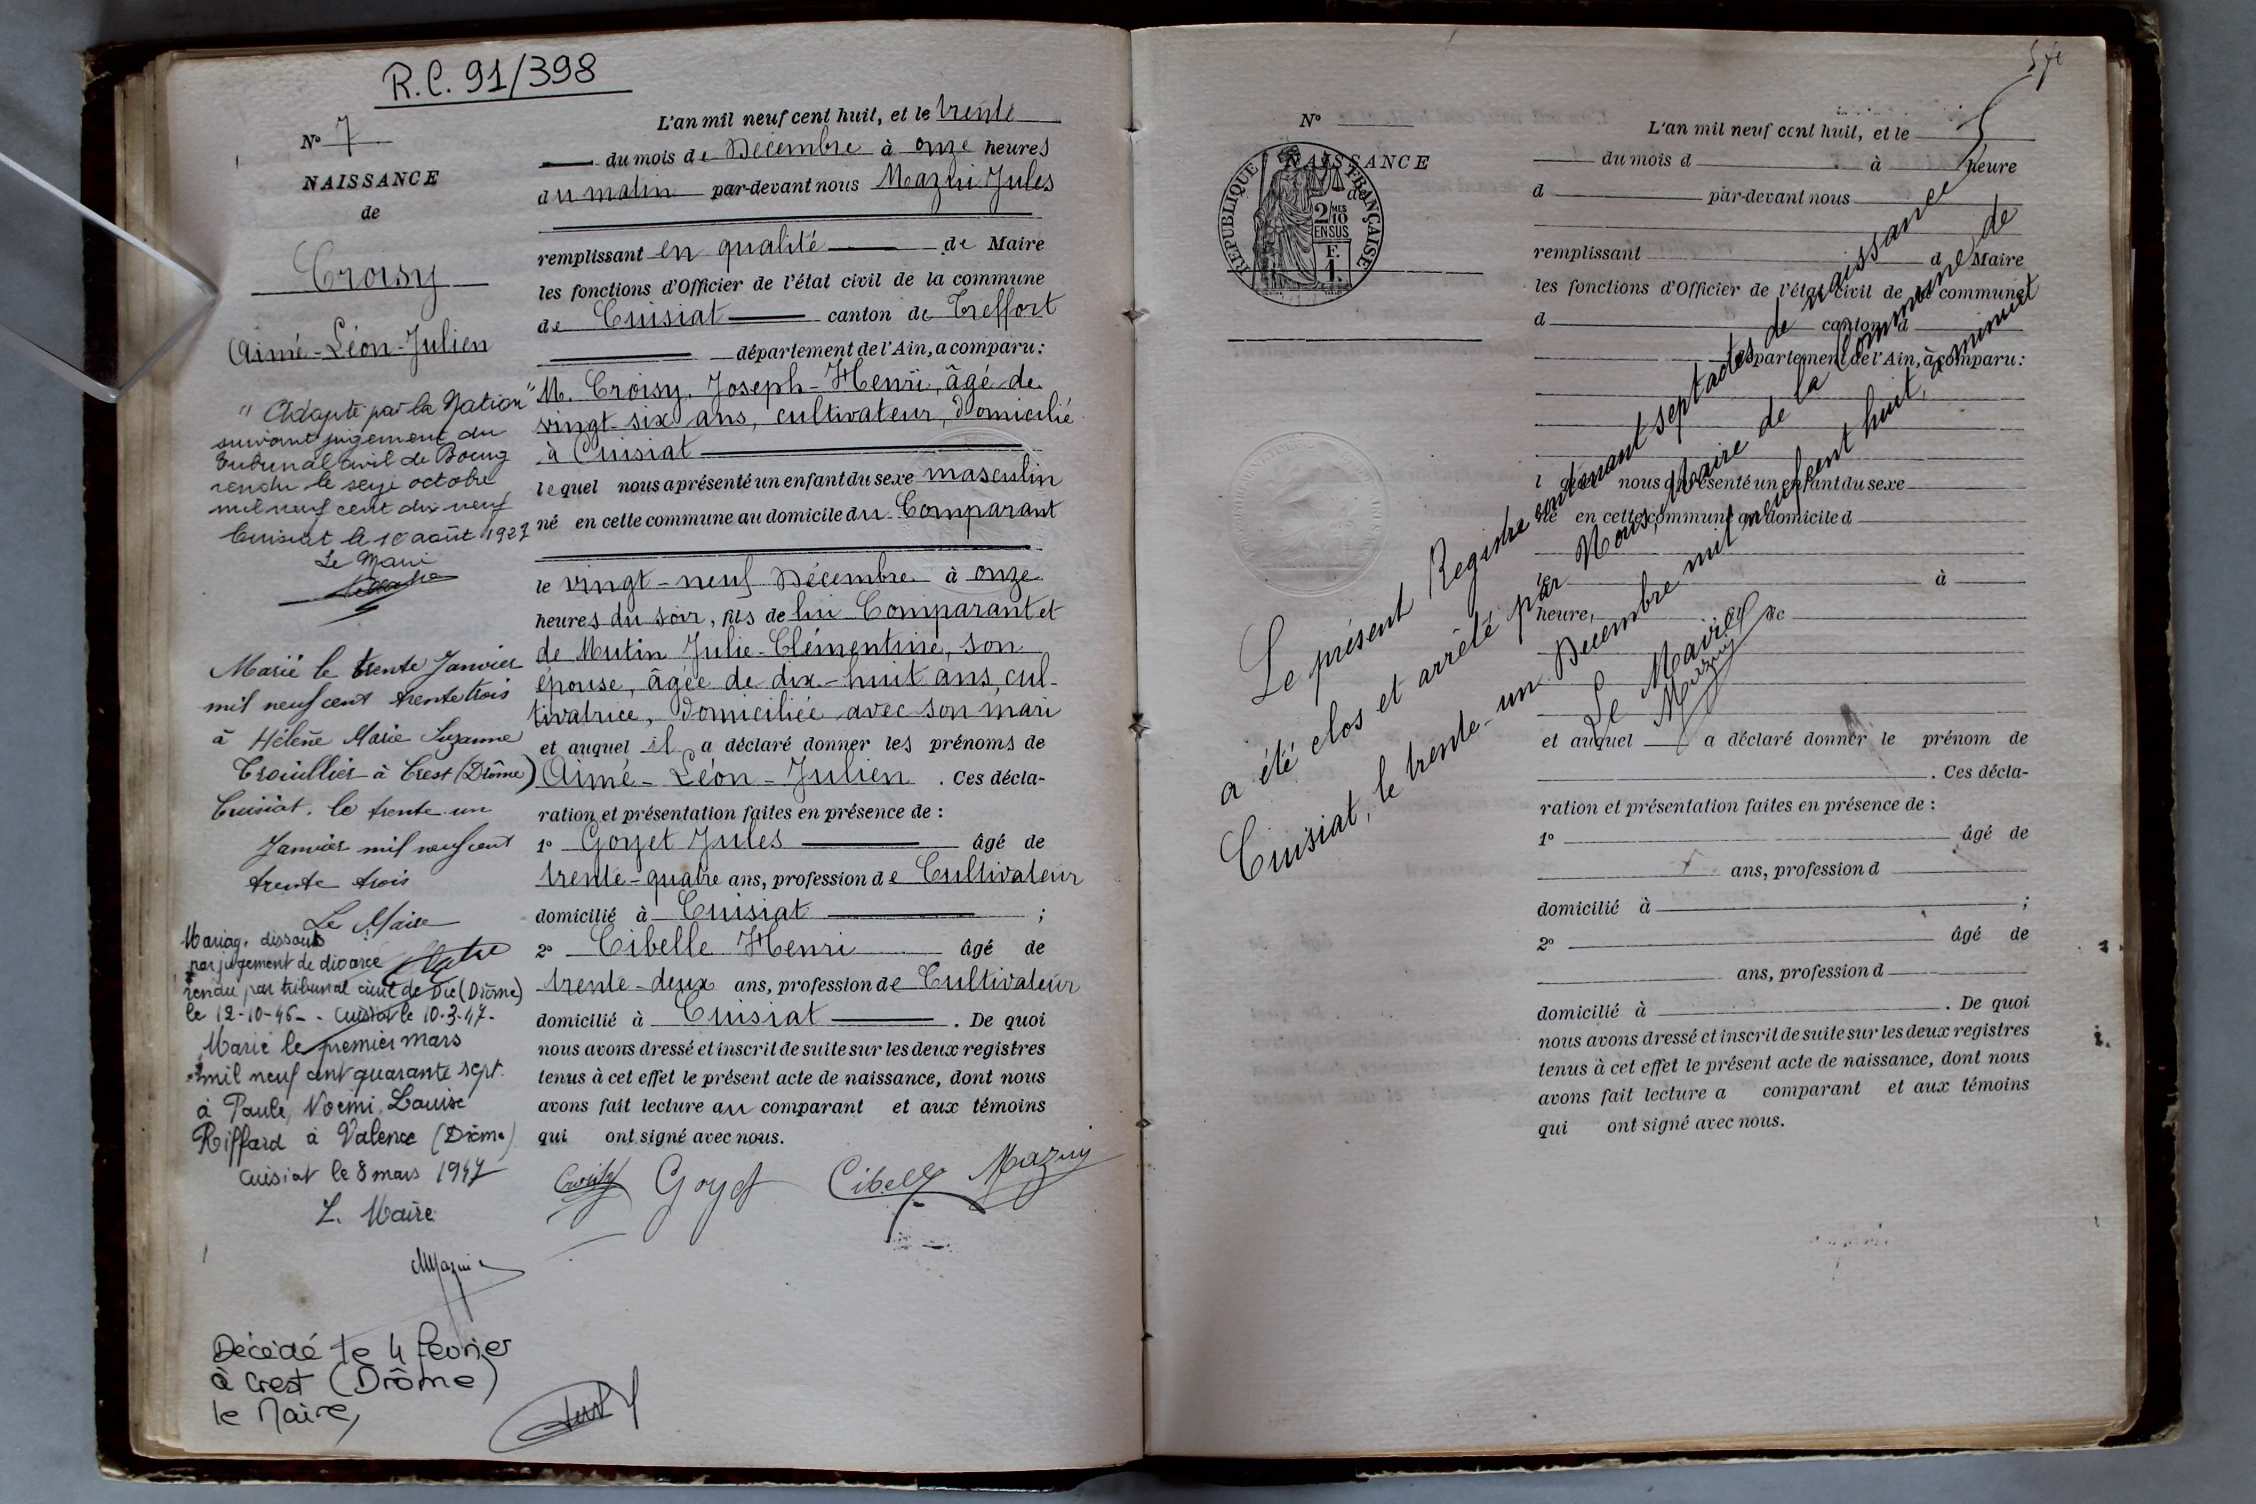 R.C. 91/398
N° 7
NAISSANCE
de
Croisy
Aimé-Léon-Julien
"Adopté par la Nation"
suivant jugement du
tribunal civil de Bourg
rendu le seize octobre
mil neuf cent dix neuf
Cuisiat le 10 août 1927
Le Maire
Marié le trente Janvier
mil neuf cent trente trois
à Hélène Marie Suzanne
Trouillier à Crest (Drôme)
Cuisiat, le trente un
Janvier mil neuf cent
trente trois
Le Maire
Mariag. dissous
par jugement de divorce
rendu par tribunal civil de Die (Drôme)
le 12-10-46 - Cuisiat le 10-3-47-
Marié le premier mars
mil neuf cent quarante sept
à Paule, Noemi, Louise
Riffard à Valence (Drôme)
Cuisiat le 8 mars 1947
L. Maire
Décédé le 4 février
à Crest (Drôme)
le Maire,
L'an mil neuf cent huit, et le trente
du mois de Décembre à onze heures
du matin par-devant nous Mazui Jules
remplissant en qualité de Maire
les fonctions d'Officier de l'état civil de la commune
de Cuisiat canton de Treffort
département de l'Ain, a comparu:
M. Croisy, Joseph-Henri, âgé de
vingt-six ans, cultivateur, domicilié
à Cuisiat
lequel nous a présenté un enfant du sexe masculin
né en cette commune au domicile du Comparant
le vingt-neuf Décembre à onze
heures du soir, fils de lui Comparant et
de Mutin Julie-Clémentine, son
épouse, âgée de dix-huit ans, cul-
tivatrice, domiciliée avec son mari
et auquel il a déclaré donner les prénoms de
Aimé-Léon-Julien. Ces décla-
ration et présentation faites en présence de:
1° Goyet Jules âgé de
trente-quatre ans, profession de Cultivateur
domicilié à Cuisiat;
2° Cibelle Henri âgé de
trente-deux ans, profession de Cultivateur
domicilié à Cuisiat. De quoi
nous avons dressé et inscrit de suite sur les deux registres
tenus à cet effet le présent acte de naissance, dont nous
avons fait lecture au comparant et aux témoins
qui ont signé avec nous.
Croisy Goyet Cibelle Mazuy
N°
NAISSANCE
de
REPUBLIQUE FRANÇAISE
2/10 MES
EN SUS
F.
1.
L'an mil neuf cent huit, et le
du mois d à heure
d par-devant nous
remplissant d Maire
les fonctions d'Officier de l'état civil de la commune
d canton d
département de l'Ain, a comparu:
l quel nous a présenté un enfant du sexe
né en cette commune au domicile d
le à
heure, de
et auquel a déclaré donner le prénom de
. Ces décla-
ration et présentation faites en présence de:
1° âgé de
ans, profession d
domicilié à ;
2° âgé de
ans, profession d
domicilié à . De quoi
nous avons dressé et inscrit de suite sur les deux registres
tenus à cet effet le présent acte de naissance, dont nous
avons fait lecture a comparant et aux témoins
qui ont signé avec nous.
Le présent Registre contenant sept actes de naissance
a été clos et arrêté par Nous, Maire de la Commune de
Cuisiat, le trente-un Décembre mil neuf cent huit, à minuit
Le Maire
Mazuy